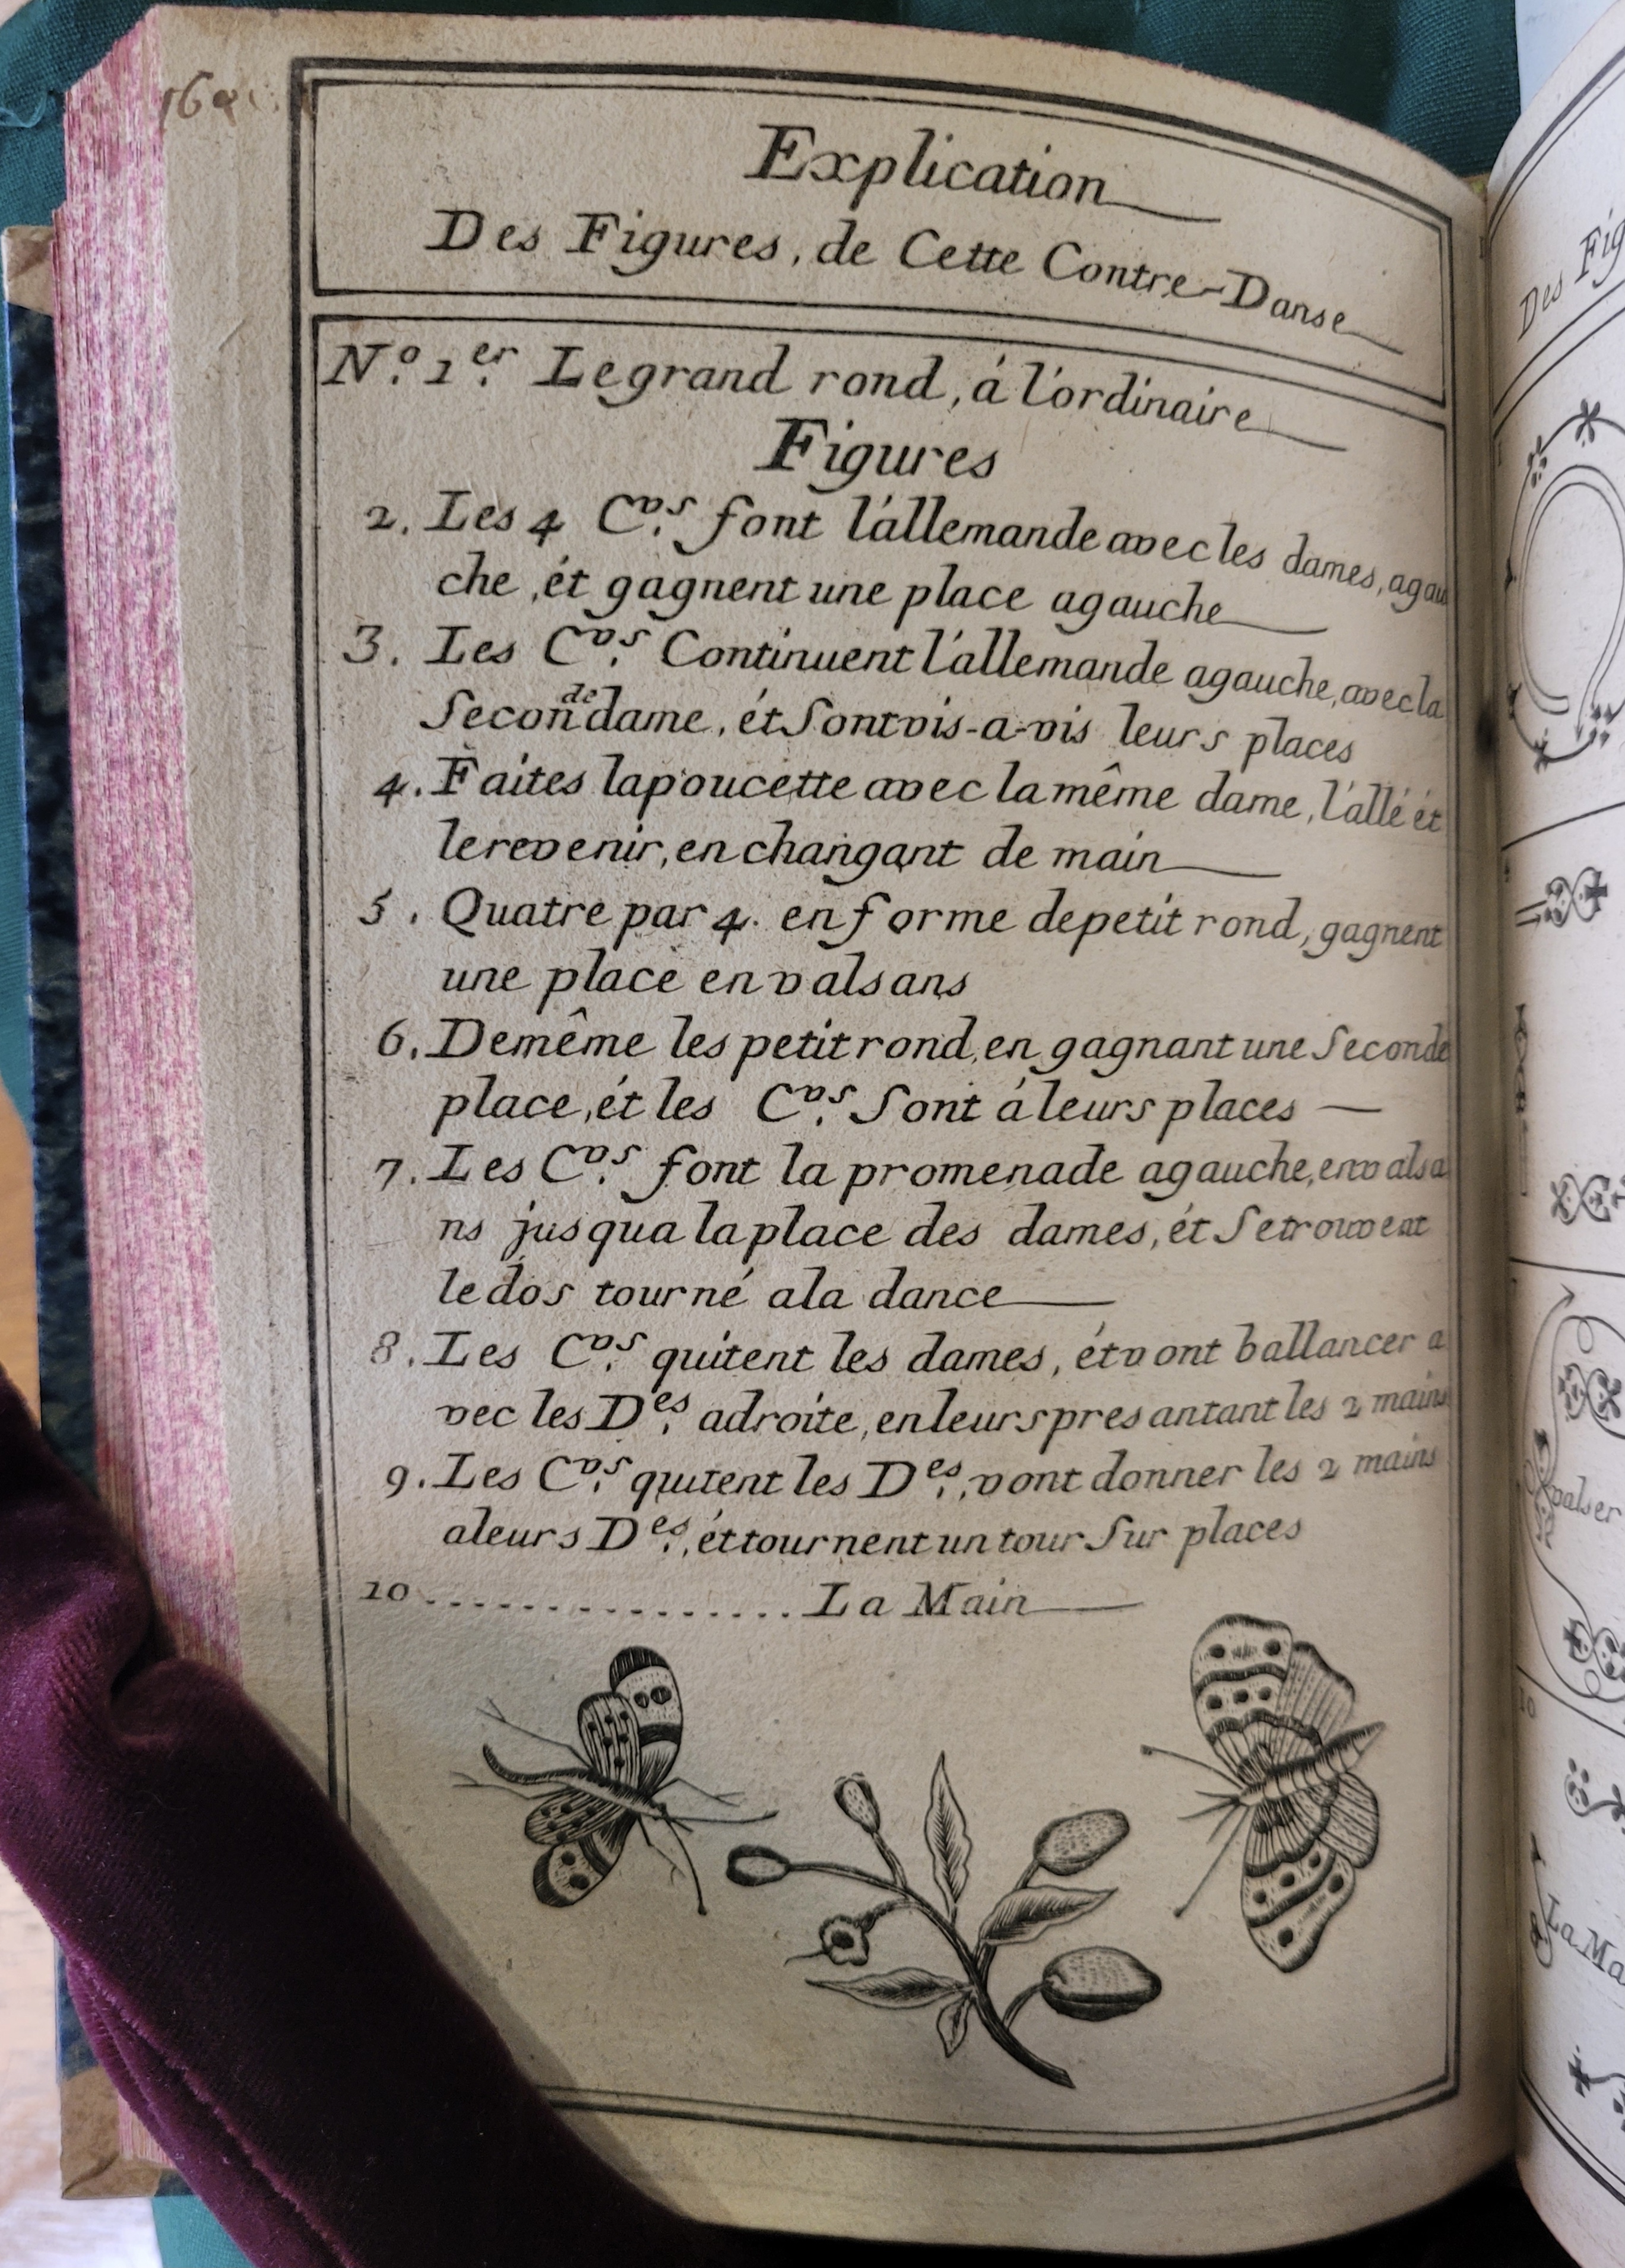 Explication
Des Figures, de Cette Contre-Danse
N.º 1.er Le grand rond, á l'ordinaire
Figures
2. Les 4 C.vs font l'allemande avec les dames, agau
che, ét gagnent une place agauche
3. Les C.vs Continuent l'allemande agauche, avec la
Seconde dame, ét Sont vis-a-vis leurs places
4. Faites la poucette avec la même dame, l'allé ét
le revenir, en changant de main
5. Quatre par 4. en forme de petit rond, gagnent
une place en valsans
6. De même les petit rond, en gagnant une Seconde
place, ét les C.vs Sont á leurs places
7. Les C.vs font la promenade agauche, en valsa
ns jusqua la place des dames, ét Se trouvent
le dos tourné ala dance
8. Les C.vs quitent les dames, ét vont ballancer a
vec les D.es adroite, en leurs presantant les 2 mains
9. Les C.vs quitent les D.es, vont donner les 2 mains
aleurs D.es, ét tournent un tour Sur places
10 ................ La Main
Des Fig
valser
10
La Ma